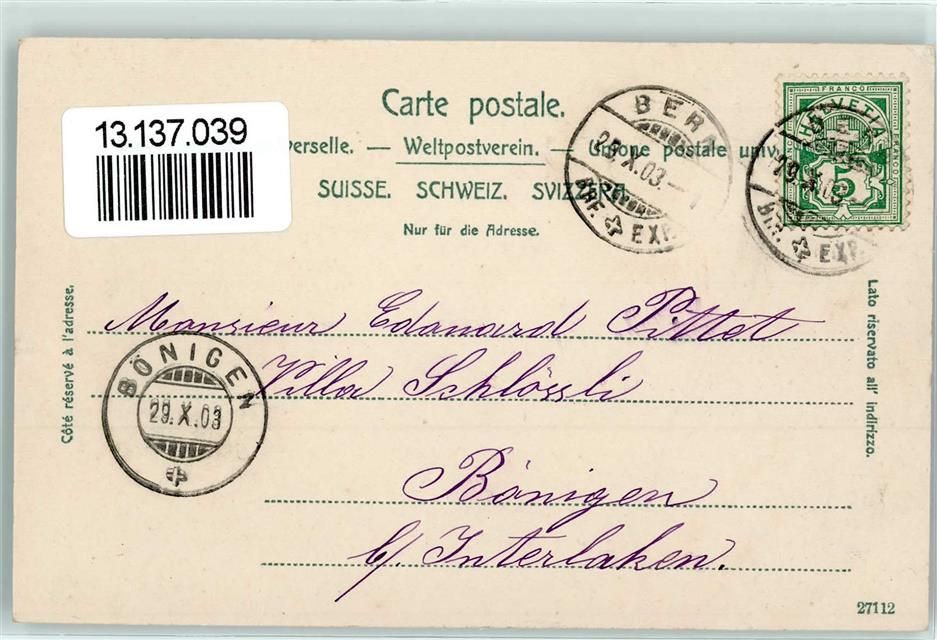 13.137.039
Carte postale.
verselle. — Weltpostverein. — Unione postale univ
SUISSE. SCHWEIZ. SVIZZERA.
Nur für die Adresse.
BERN
29.X.03
BRF. EXP.
FRANCO
HELVETIA
5
BRF. EXP.
Côté réservé à l'adresse.
Lato riservato all' indirizzo.
Monsieur Edouard Pittet
Villa Schlössli
Bönigen
b/ Interlaken.
BÖNIGEN
29.X.03
27112